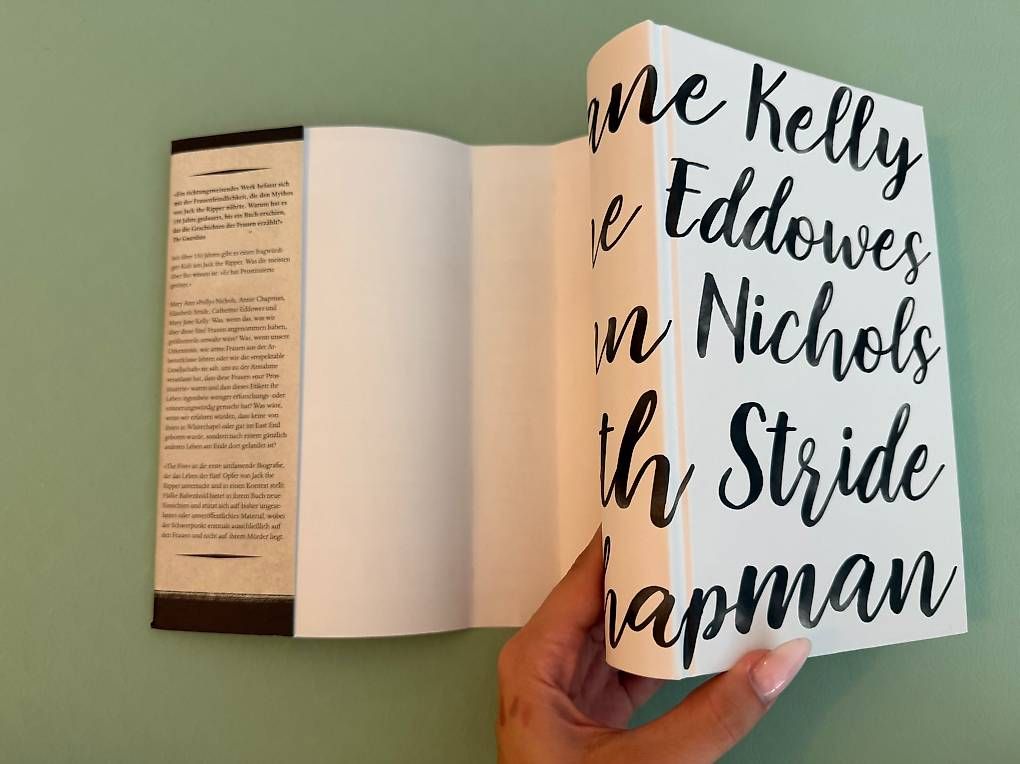 «Ein richtungsweisendes Werk befasst sich
mit der Frauenfeindlichkeit, die den Mythos
von Jack the Ripper nährte. Warum hat es
130 Jahre gedauert, bis ein Buch erschien,
das die Geschichten der Frauen erzählt?»
The Guardian
Seit über 130 Jahren gibt es einen fragwürdi-
gen Kult um Jack the Ripper. Was die meisten
über ihn wissen ist: «Er hat Prostituierte
getötet.»
Mary Ann «Polly» Nichols, Annie Chapman,
Elizabeth Stride, Catherine Eddowes und
Mary Jane Kelly: Was, wenn das, was wir
über diese fünf Frauen angenommen haben,
größtenteils unwahr wäre? Was, wenn unsere
Unkenntnis, wie arme Frauen aus der Ar-
beiterklasse lebten oder wie die respektable
Gesellschaft sie sah, uns zu der Annahme
veranlasst hat, dass diese Frauen «nur Pros-
tituierte» waren und dass dieses Etikett ihr
Leben irgendwie weniger erforschungs- oder
erinnerungswürdig gemacht hat? Was wäre,
wenn wir erfahren würden, dass keine von
ihnen in Whitechapel oder gar im East End
geboren wurde, sondern nach einem gänzlich
anderen Leben am Ende dort gelandet ist?
«The Five» ist die erste umfassende Biografie,
die das Leben der fünf Opfer von Jack the
Ripper untersucht und in einen Kontext stellt.
Hallie Rubenhold bietet in ihrem Buch neue
Einsichten und stützt sich auf bisher ungese-
henes oder unveröffentlichtes Material, wobei
der Schwerpunkt erstmals ausschließlich auf
den Frauen und nicht auf ihrem Mörder liegt.
ane Kelly
e Eddowes
nn Nichols
th Stride
hapman